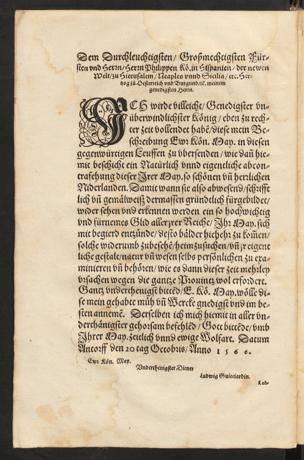 Dem Durchleuchtigsten/ Großmechtigsten Für-
sten vnd Herrn/ Herrn Philippen Kö. in Hispanien/ der newen
Welt/ zu Hierusalem/ Neaples vnnd Sicilia/ etc. Her-
tzog zů Oesterreich vnd Burgund/ ꝛc. meinem
genedigsten Herrn.
ICH wirde villeicht/ Genedigster vn-
überwindlichster König/ eben zu rech-
ter zeit vollendet habē/ diese mein Be-
schreibung Ewr Kön. May. in diesen
gegenwürtigen Leuffen zu vbersenden/ wie dañ hie-
mit beschicht ein Natürlich vnnd eigentliche abcon-
trafehung dieser Jrer May. so schönen vñ herrlichen
Niderlanden. Damit wann sie also abwesend/ schrifft
lich vñ gemälweiß dermassen gründlich fürgebildet/
wider sehen vnd erkennen werden ein so hochwichtig
vnd fürnemes Glid allerjrer Reiche/ Jhr May. sich
mit begierd entzünde/ desto bälder hieheh zu kom̄en/
solche widerumb zubesehē/ heimzusuchen/ vñ jr eigent
liche gestalt/ natur vñ wesen selbs persönlichen zu exa-
minieren vñ behören/ wie es dann dieser zeit mehrley
vrsachen wegen die gantze Prouintz wol erfordert.
Gantz vnderthenigst bittēd/ E. Kön. May. wölle di-
se mein gehabte müh vñ Wercke gnedigst vnd im be-
sten annemē. Derselben ich mich hiemit in aller vn-
derthänigster gehorsam befehlēd/ Gott bittēde/ vmb
Jhrer May. zeitlich vnnd ewige Wolfart. Datum
Antorff den 20 tag Octobris/ Anno 1566.
Ewr Kön. May.
Vnderthenigster Diener
Ludwig Guicciardin.
Lud-